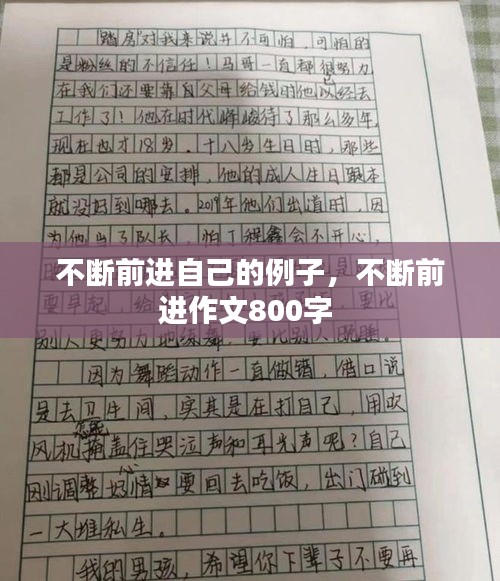 “踏房”对我来说并不可怕，可怕的
是粉丝的不信任！马哥一直都很努力
在我们还要靠自父母给钱时他以经去
工作了！他在时代峰峻待了那么多年，
现在也才18岁。十八岁生日时，那些
都是公司的安排，他的成人生日跟本
就没好到哪去。2019年他们出道时，因
为他当了队长，怕丁程鑫会不开心，
不断前进自己的例子，不断前
进作文800字
要早起，给
别人更努力地练舞，要比别人晚
因为舞蹈动作一直做错，借口说
是去卫生间，实其是在打自己，用吹
风机怎能掩盖住哭泣声和耳光声呢？自己
刚调整好心情要回去吃饭，出门碰到
一大堆私生。
我的男孩，希望你下辈子不要再